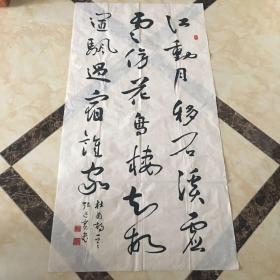 江動月移石溪虛
雲傍花鳥棲知故
道飄過宿誰家
杜甫詩一首